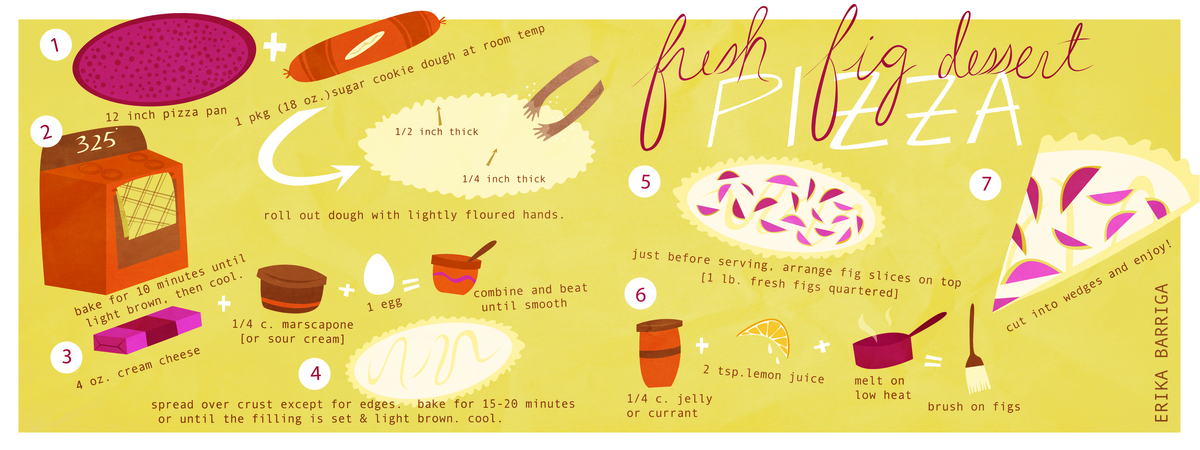 fresh fig dessert
PIZZA
1
12 inch pizza pan
+
1 pkg (18 oz.)sugar cookie dough at room temp
1/2 inch thick
1/4 inch thick
roll out dough with lightly floured hands.
2
325°
bake for 10 minutes until
light brown, then cool.
3
4 oz. cream cheese
+
1/4 c. marscapone
[or sour cream]
+
1 egg
=
combine and beat
until smooth
4
spread over crust except for edges. bake for 15-20 minutes
or until the filling is set & light brown. cool.
5
just before serving, arrange fig slices on top
[1 lb. fresh figs quartered]
6
1/4 c. jelly
or currant
+
2 tsp.lemon juice
+
melt on
low heat
=
brush on figs
7
cut into wedges and enjoy!
ERIKA BARRIGA